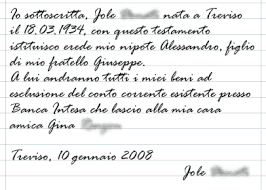 Io sottoscritta, Jole nata a Treviso
il 18.03.1934, con questo testamento
istituisco erede mio nipote Alessandro, figlio
di mio fratello Giuseppe.
A lui andranno tutti i miei beni ad
esclusione del conto corrente esistente presso
Banca Intesa che lascio alla mia cara
amica Gina
Treviso, 10 gennaio 2008
Jole